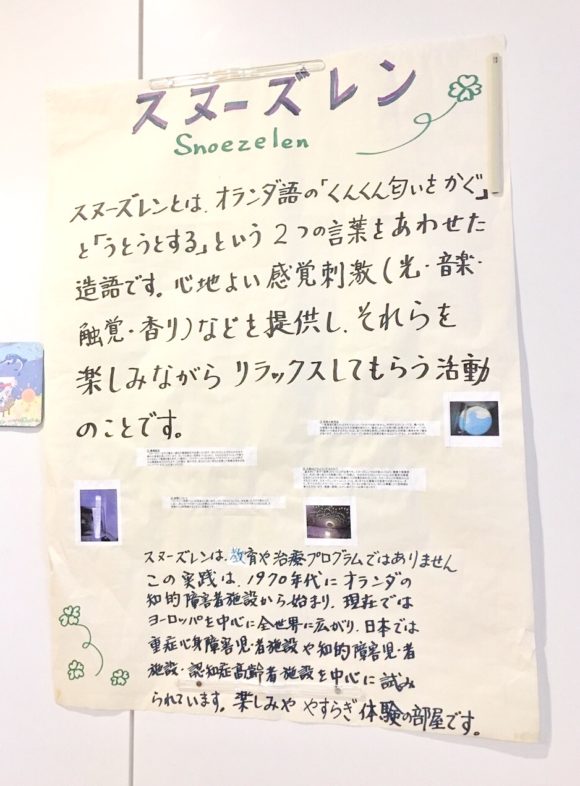 スヌーズレン
Snoezelen
スヌーズレンとは、オランダ語の「くんくん匂いをかぐ」
と「うとうとする」という2つの言葉をあわせた
造語です。心地よい感覚刺激(光・音楽・
触覚・香り)などを提供し、それらを
楽しみながらリラックスしてもらう活動
のことです。
スヌーズレンは、教育や治療プログラムではありません
この実践は、1970年代にオランダの
知的障害者施設から始まり、現在では
ヨーロッパを中心に全世界に広がり、日本では
重症心身障害児・者施設や知的障害児・者
施設・認知症高齢者施設を中心に試み
られています。楽しみややすらぎ体験の部屋です。